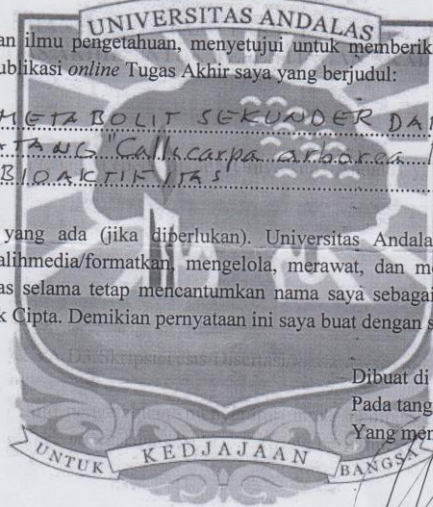 UNIVERSITAS ANDALAS
an ilmu pengetahuan, menyetujui untuk memberik
ublikasi online Tugas Akhir saya yang berjudul:
METABOLIT SEKUNDER DA
ATANG "Callicarpa arborea
BIOAKTIFITAS
yang ada (jika diperlukan). Universitas Andala
alihmedia/formatkan, mengelola, merawat, dan me
as selama tetap mencantumkan nama saya sebagai
k Cipta. Demikian pernyataan ini saya buat dengan s
Dibuat di
Pada tang
Yang men
UNTUK KEDJAJAAN BANGSA